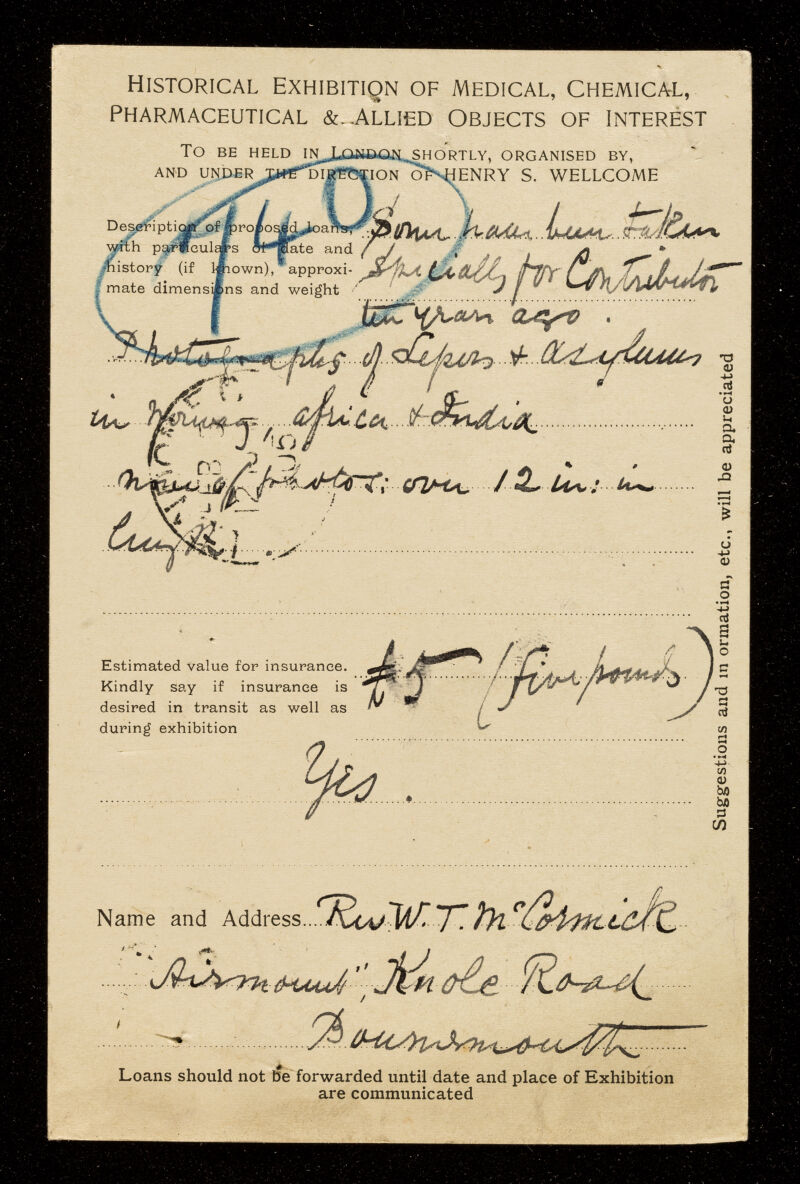 HISTORICAL EXHIBITION OF MEDICAL, CHEMICAL,
PHARMACEUTICAL & ALLIED OBJECTS OF INTEREST
TO BE HELD IN LONDON SHORTLY, ORGANISED BY,
AND UNDER THE DIRECTION OF HENRY S. WELLCOME
740
Description of proposed loans,
with particulars of date and
history (if known), approxi-
mate dimensions and weight
Some have been taken
specially for Contributor
ten years ago.
Photographs of Lepers & Asylums
in Norway, Africa & India
none of photos: over 12 in: in
length.
Estimated value for insurance.
Kindly say if insurance is
desired in transit as well as
during exhibition
£5 (five pounds)
Yes.
Name and Address Rev W. T. McCormick
"Airmount", Knole Road
Bournemouth
Loans should not be forwarded until date and place of Exhibition
are communicated
Suggestions and in ormation, etc., will be appreciated